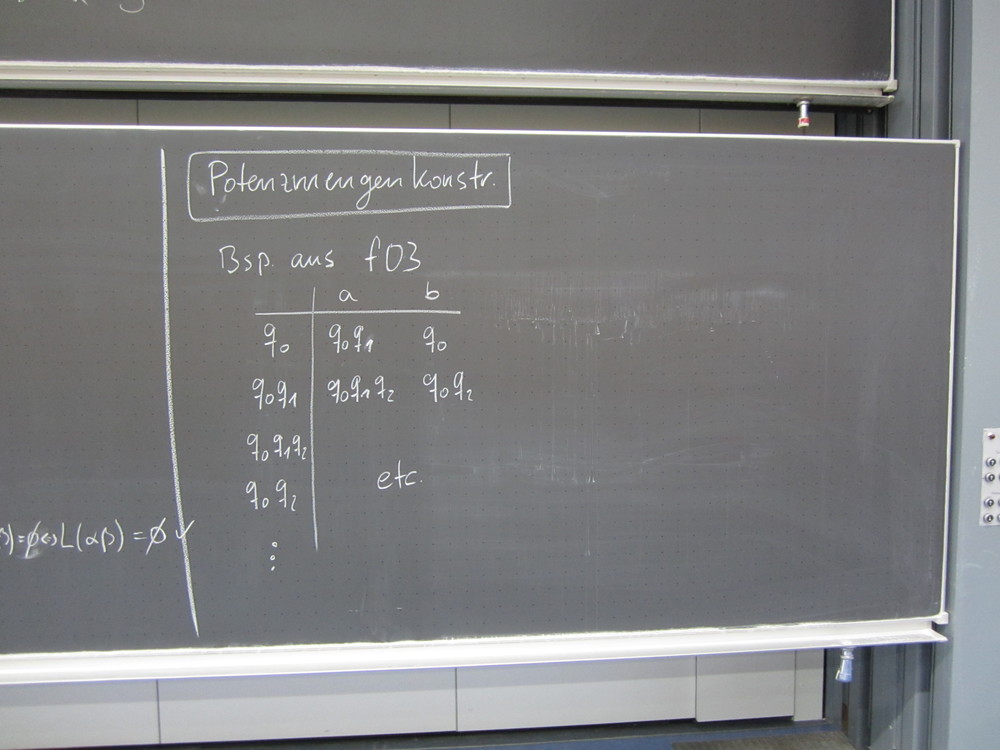 Potenzmengenkonstr.
Bsp. aus f03
a b
q0 q0q1 q0
q0q1 q0q1q2 q0q2
q0q1q2
q0q2 etc.
⋮
)=∅⇔L(αβ) = ∅ ✓